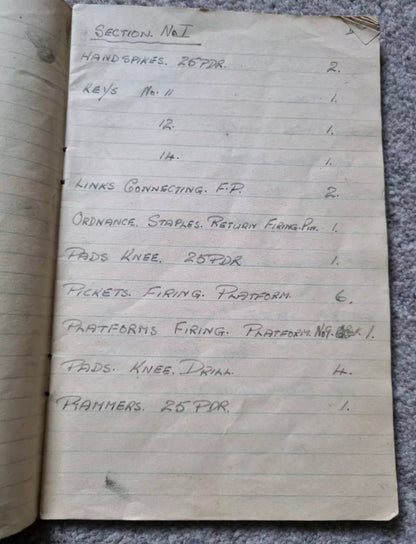 SECTION. No I
HANDSPIKES. 25 PDR. 2.
KEYS No. 11 1.
12. 1.
14. 1.
LINKS CONNECTING. F.P. 2.
ORDNANCE. STAPLES. RETURN FIRING. PIN. 1.
PADS KNEE. 25 PDR 1.
PICKETS. FIRING. PLATFORM. 6.
PLATFORMS FIRING. PLATFORM. No9. 1.
PADS. KNEE. DRILL. 4.
RAMMERS. 25 PDR. 1.